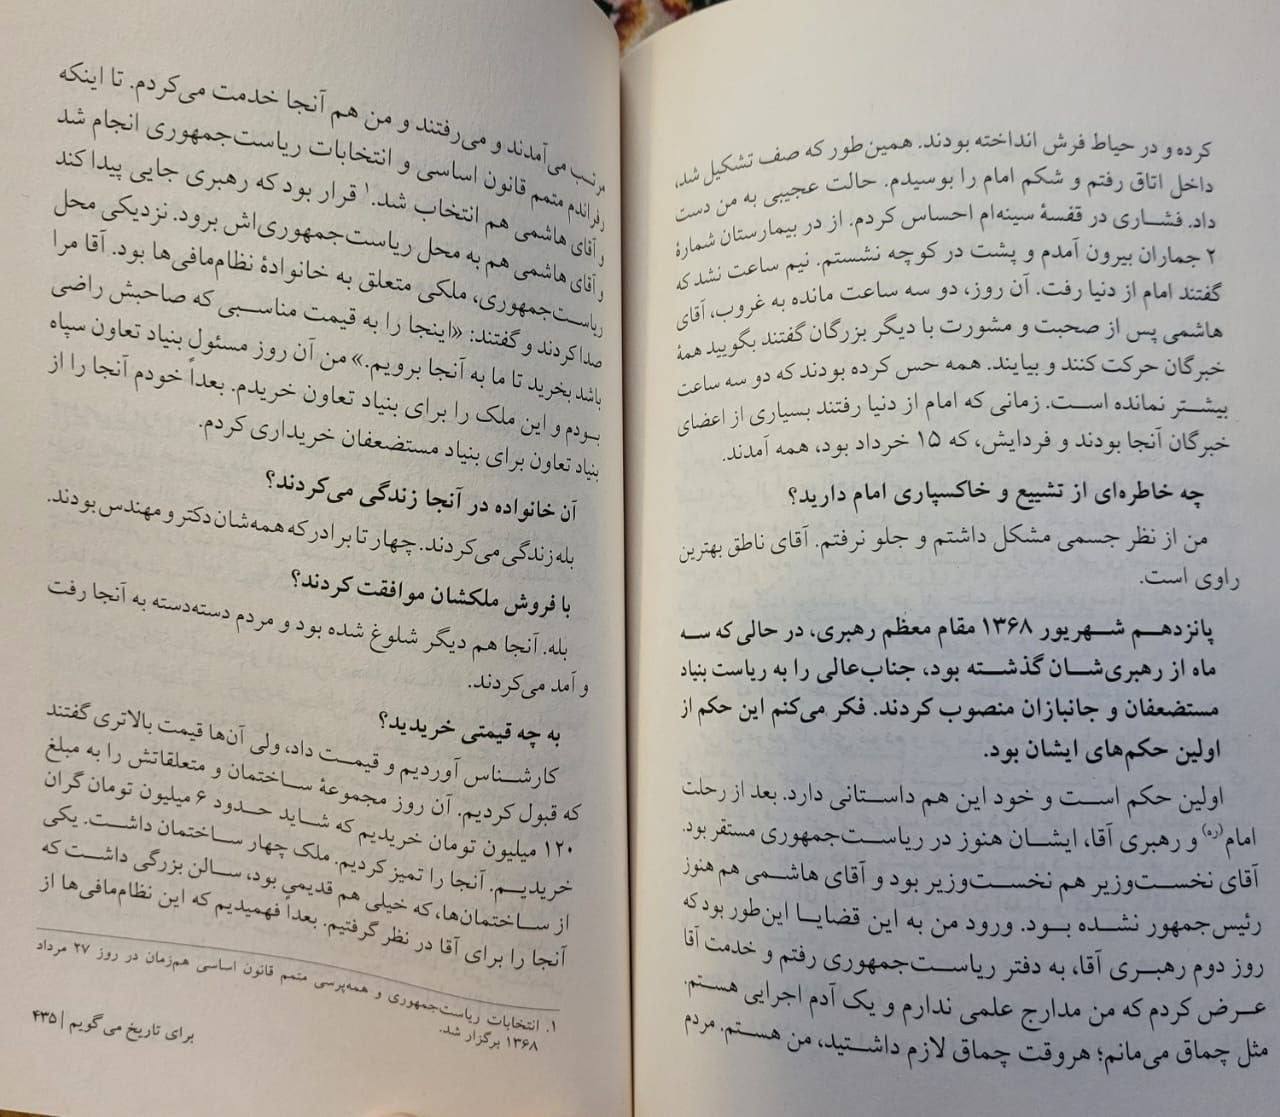 کرده و در حیاط فرش انداخته بودند. همین‌طور که صف تشکیل شد،
داخل اتاق رفتم و شکم امام را بوسیدم. حالت عجیبی به من دست
داد. فشاری در قفسهٔ سینه‌ام احساس کردم. از در بیمارستان شمارهٔ
۲ جماران بیرون آمدم و پشت در کوچه نشستم. نیم ساعت نشد که
گفتند امام از دنیا رفت. آن روز، دو سه ساعت مانده به غروب، آقای
هاشمی پس از صحبت و مشورت با دیگر بزرگان گفتند بگویید همهٔ
خبرگان حرکت کنند و بیایند. همه حس کرده بودند که دو سه ساعت
بیشتر نمانده است. زمانی که امام از دنیا رفتند بسیاری از اعضای
خبرگان آنجا بودند و فردایش، که ۱۵ خرداد بود، همه آمدند.
چه خاطره‌ای از تشییع و خاکسپاری امام دارید؟
من از نظر جسمی مشکل داشتم و جلو نرفتم. آقای ناطق بهترین
راوی است.
پانزدهم شهریور ۱۳۶۸ مقام معظم رهبری، در حالی که سه
ماه از رهبری‌شان گذشته بود، جناب‌عالی را به ریاست بنیاد
مستضعفان و جانبازان منصوب کردند. فکر می‌کنم این حکم از
اولین حکم‌های ایشان بود.
اولین حکم است و خود این هم داستانی دارد. بعد از رحلت
امام(ره) و رهبری آقا، ایشان هنوز در ریاست‌جمهوری مستقر بود.
آقای نخست‌وزیر هم نخست‌وزیر بود و آقای هاشمی هم هنوز
رئیس‌جمهور نشده بود. ورود من به این قضایا این‌طور بود که
روز دوم رهبری آقا، به دفتر ریاست‌جمهوری رفتم و خدمت آقا
عرض کردم که من مدارج علمی ندارم و یک آدم اجرایی هستم.
مثل چماق می‌مانم؛ هروقت چماق لازم داشتید، من هستم. مردم
مرتب می‌آمدند و می‌رفتند و من هم آنجا خدمت می‌کردم. تا اینکه
رفراندم متمم قانون اساسی و انتخابات ریاست‌جمهوری انجام شد
و آقای هاشمی هم انتخاب شد.۱ قرار بود که رهبری جایی پیدا کند
و آقای هاشمی هم به محل ریاست‌جمهوری‌اش برود. نزدیکی محل
ریاست‌جمهوری، ملکی متعلق به خانوادهٔ نظام‌مافی‌ها بود. آقا مرا
صدا کردند و گفتند: «اینجا را به قیمت مناسبی که صاحبش راضی
باشد بخرید تا ما به آنجا برویم.» من آن روز مسئول بنیاد تعاون سپاه
بودم و این ملک را برای بنیاد تعاون خریدم. بعداً خودم آنجا را از
بنیاد تعاون برای بنیاد مستضعفان خریداری کردم.
آن خانواده در آنجا زندگی می‌کردند؟
بله زندگی می‌کردند. چهار تا برادر که همه‌شان دکتر و مهندس بودند.
با فروش ملکشان موافقت کردند؟
بله. آنجا هم دیگر شلوغ شده بود و مردم دسته‌دسته به آنجا رفت
و آمد می‌کردند.
به چه قیمتی خریدید؟
کارشناس آوردیم و قیمت داد، ولی آن‌ها قیمت بالاتری گفتند
که قبول کردیم. آن روز مجموعهٔ ساختمان و متعلقاتش را به مبلغ
۱۲۰ میلیون تومان خریدیم که شاید حدود ۶ میلیون تومان گران
خریدیم. آنجا را تمیز کردیم. ملک چهار ساختمان داشت. یکی
از ساختمان‌ها، که خیلی هم قدیمی بود، سالن بزرگی داشت که
آنجا را برای آقا در نظر گرفتیم. بعداً فهمیدیم که این نظام‌مافی‌ها از
۱. انتخابات ریاست‌جمهوری و همه‌پرسی متمم قانون اساسی همزمان در روز ۲۷ مرداد
۱۳۶۸ برگزار شد.
برای تاریخ می‌گویم | ۴۳۵